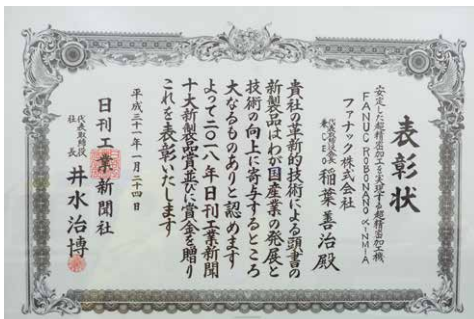 表彰状
安定した超精密加工を実現する超精密加工機
FANUC ROBONANO α-NMiA
ファナック株式会社
代表取締役会長
兼CEO 稲葉善治殿
貴社の革新的技術による頭書の
新製品はわが国産業の発展と
技術の向上に寄与するところ
大なるものありと認めます
よって二〇一八年日刊工業新聞
十大新製品賞並びに賞金を贈り
これを表彰いたします
平成三十一年一月二十四日
日刊工業新聞社
代表取締役
社長 井水治博